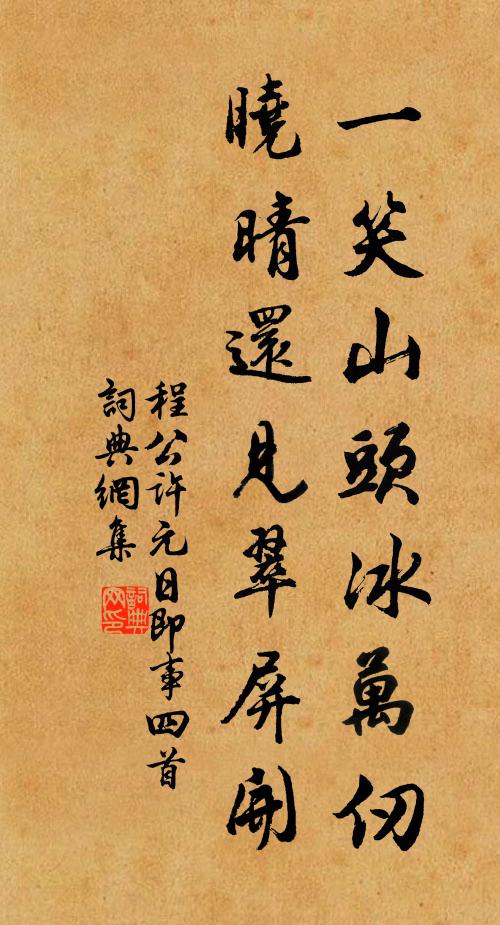 一笑山頭冰萬仞
曉晴還見翠屏開
程公許元日即事四首
詞典網集
詞典網印